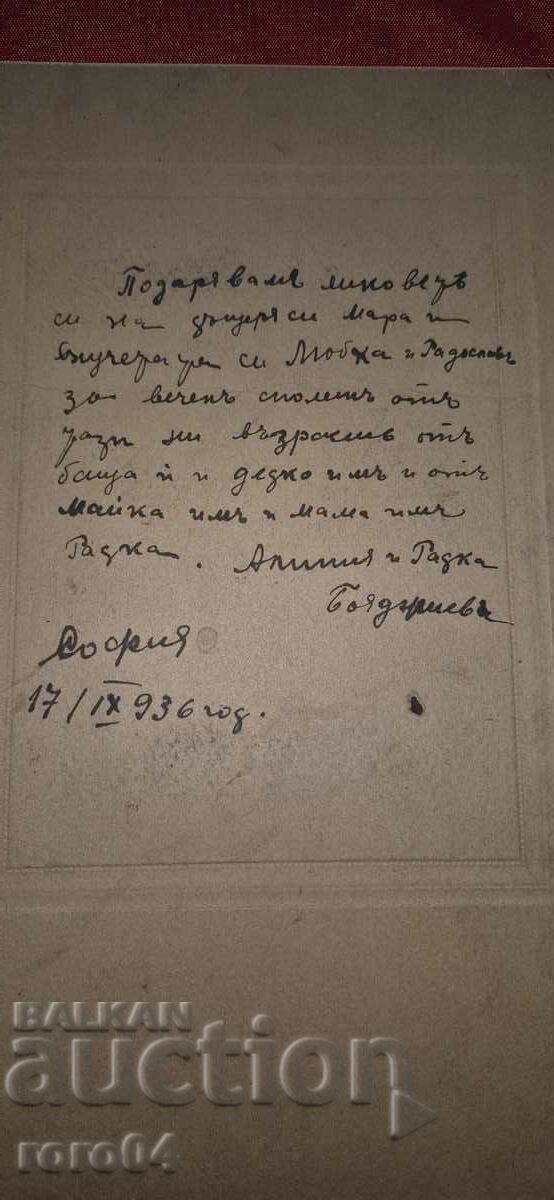 Подаряваме ликоветѣ
си на дъщеря си Мара и
внучетата си Любка и Радославъ
за веченъ споменъ отъ
тази ни възрастъ отъ
баща й и дедко имъ и отъ
Майка имъ и мама имъ
Радка. и Радка
Бояджиеви
София
17/IX 936 год.
BALKAN
auction
roro04